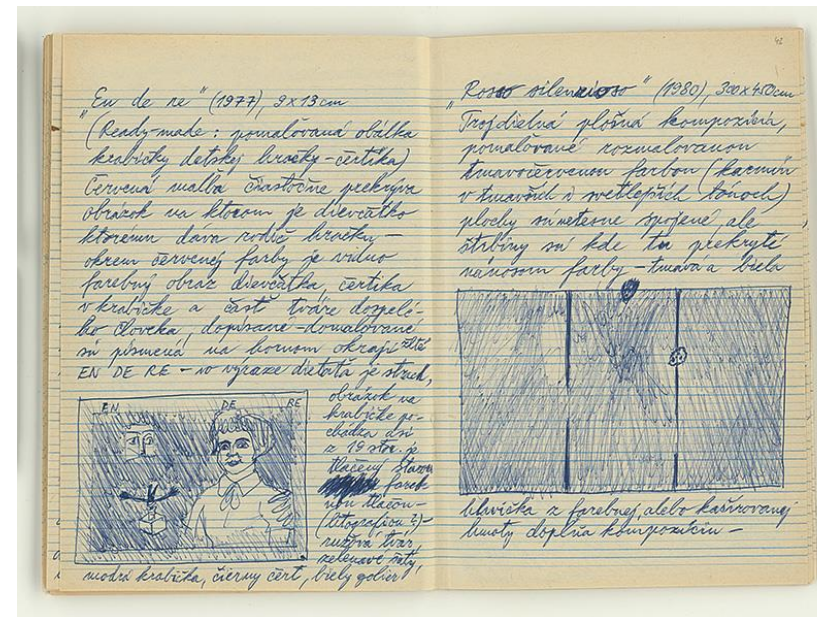 „En de re" (1977), 9x13 cm
(Ready-made: pomaľovaná obálka
krabičky detskej hračky - čertíka)
Červená maľba čiastočne prekrýva
obrázok na ktorom je dievčatko
ktorému dáva rodič hračky -
okrem červenej farby je vidno
farebný obraz dievčatka, čertíka
v krabičke a časť tváre dospelé-
ho človeka, dopísané - domaľované
sú písmená na hornom okraji žlté
EN DE RE - vo výraze dieťaťa je strach,
obrázok na
krabičke po-
chádza asi
z 19 stor. je
tlačený
fareb-
nou tlačou -
(litografiou?) -
ružová tvár
zelenavé šaty,
modrá krabička, čierny čert, biely golier,
EN DE RE
42
„Rosso silenzioso" (1980), 300x450cm
Trojdielna plošná kompozícia,
pomaľované rozmaľovanou
tmavočervenou farbou (karmín
v tmavších i svetlejších tónoch)
plochy sú netesne spojené, ale
štrbiny sú kde tu prekryté
nánosom farby - tmavá a biela
z farebnej alebo kašírovanej
hmoty dopĺňa kompozíciu -